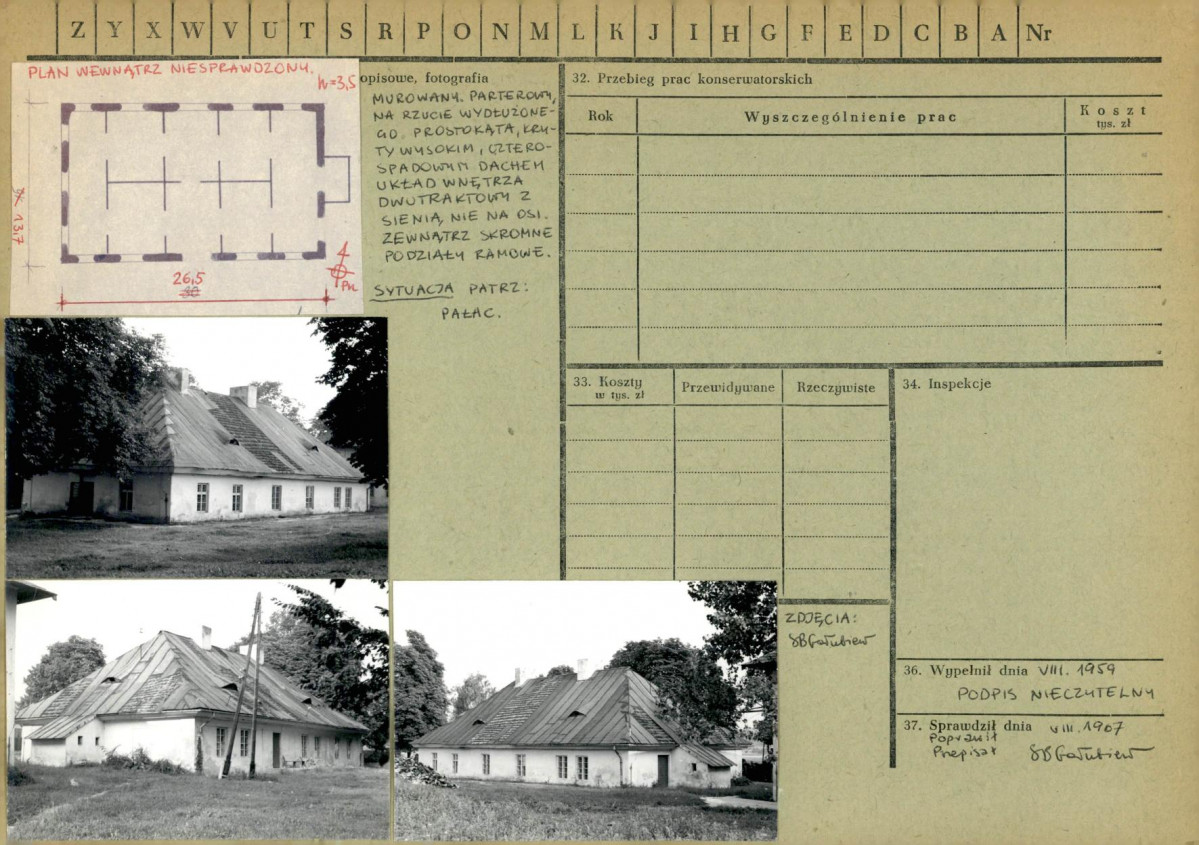 Z Y X W V U T S R P O N M L K J I H G F E D C B A Nr
PLAN WEWNĄTRZ NIESPRAWDZONY.
h=3,5
13,7
26,5
30
Pn
opisowe, fotografia
MUROWANY. PARTEROWY,
NA RZUCIE WYDŁUŻONE-
GO PROSTOKĄTA, KRY-
TY WYSOKIM, CZTERO-
SPADOWYM DACHEM
UKŁAD WNĘTRZA
DWUTRAKTOWY Z
SIENIĄ NIE NA OSI.
ZEWNĄTRZ SKROMNE
PODZIAŁY RAMOWE.
SYTUACJA PATRZ:
PAŁAC.
32. Przebieg prac konserwatorskich
Rok Wyszczególnienie prac Koszt
tys. zł
33. Koszty
w tys. zł
Przewidywane Rzeczywiste
34. Inspekcje
ZDJĘCIA:
36. Wypełnił dnia VIII. 1959
PODPIS NIECZYTELNY
37. Sprawdził dnia VIII.
Poprawił
Przepisał